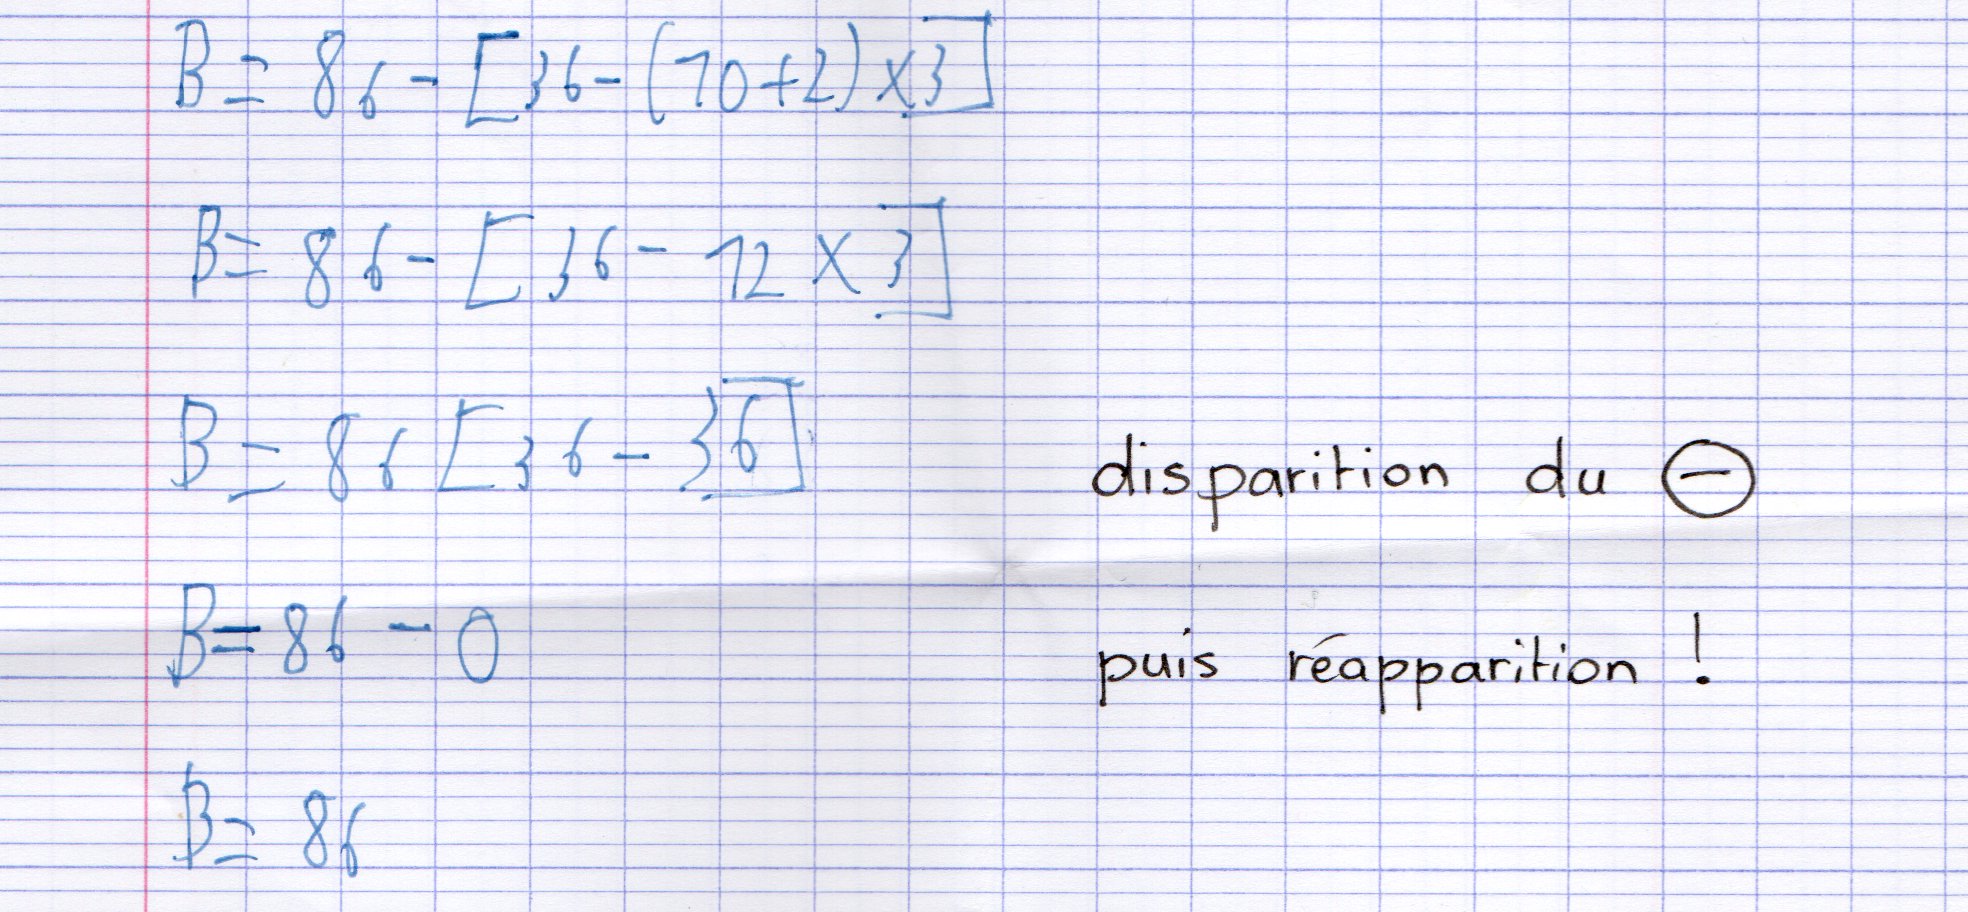 B = 86 - [36 - (10+2) × 3]
B = 86 - [36 - 12 × 3]
B = 86 [36 - 36]
disparition du ⊖
B = 86 - 0
puis réapparition !
B = 86